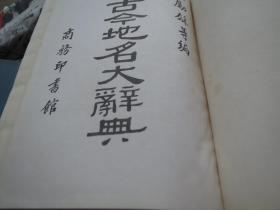 勵龢等編
古今地名大辭典
商務印書館